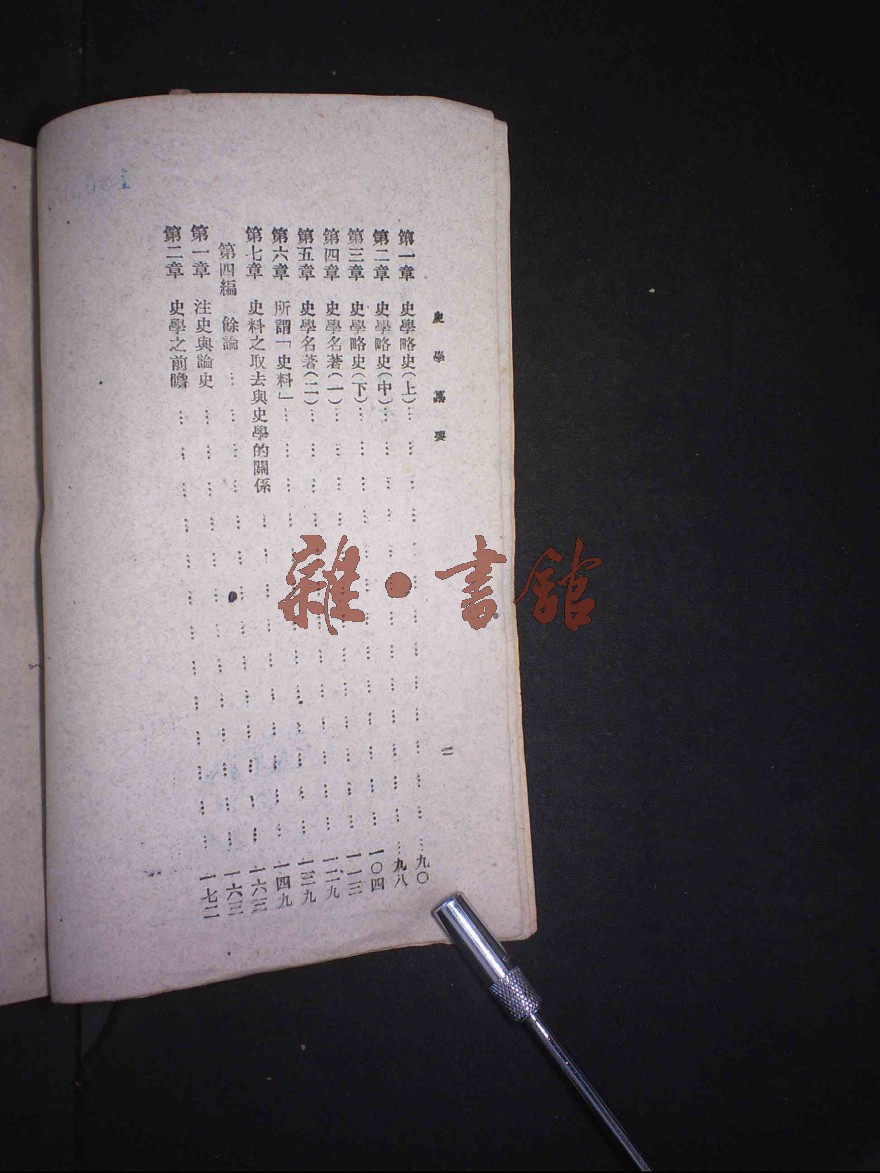 史學纂要 二
第一章 史學略史(上)…………九〇
第二章 史學略史(中)…………九八
第三章 史學略史(下)…………一〇四
第四章 史學名著(一)…………一一三
第五章 史學名著(二)…………一二九
第六章 所謂「史料」…………一三九
第七章 史料之取去與史學的關係…………一四九
第四編 餘論…………一六三
第一章 注史與論史…………一六三
第二章 史學之前瞻…………一七二
雜·書館